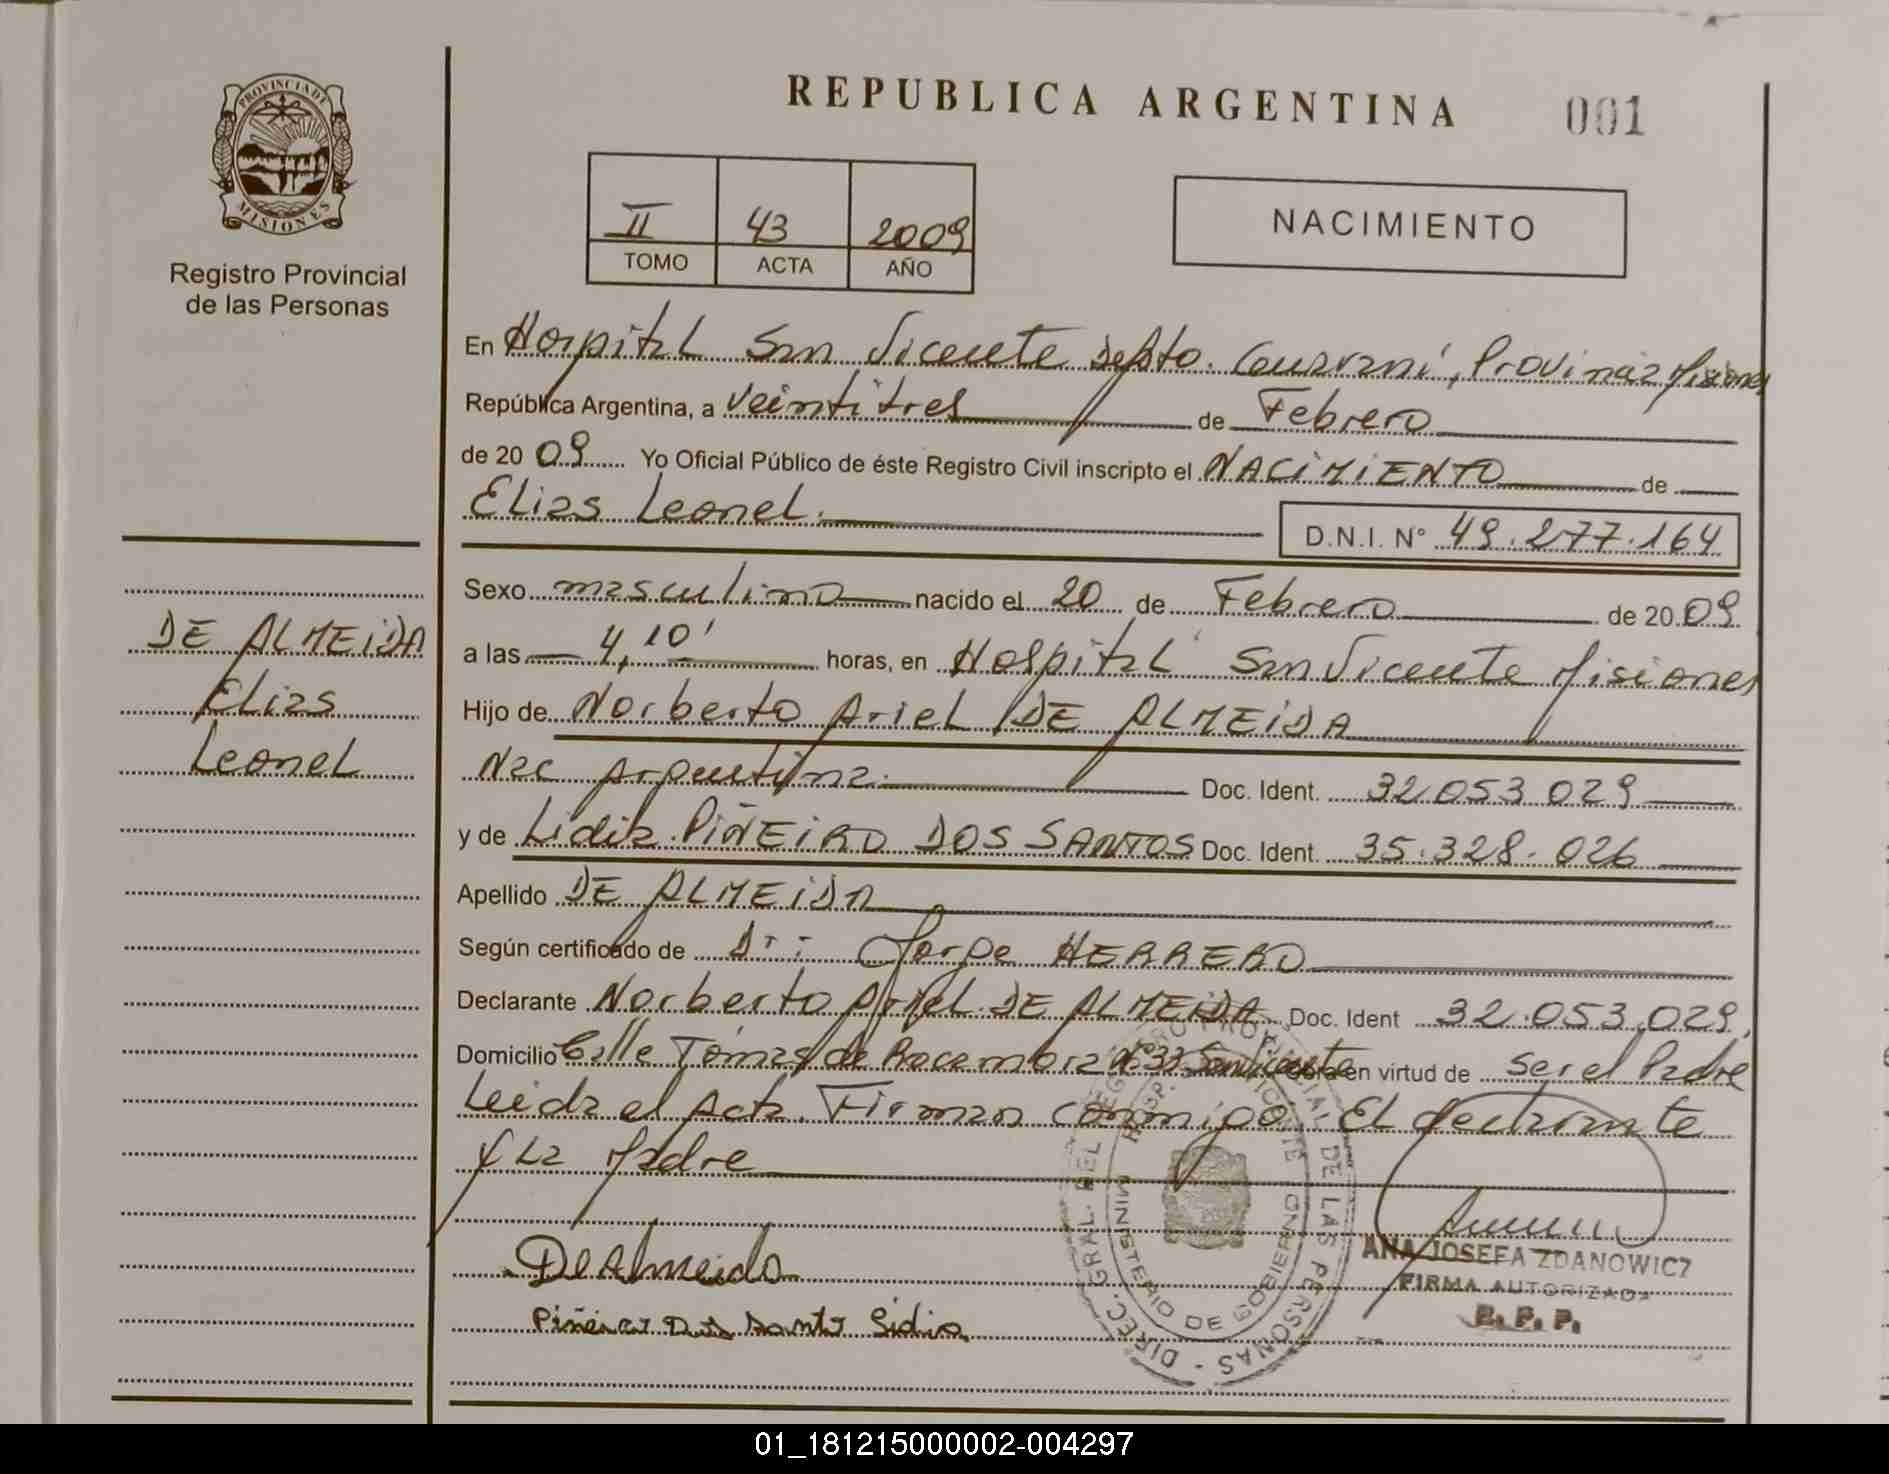 REPUBLICA ARGENTINA 001
PROVINCIA DE
MISIONES
Registro Provincial
de las Personas
II 43 2009
TOMO ACTA AÑO
NACIMIENTO
En Hospital San Vicente Depto. Guaraní, Provincia Misiones
República Argentina, a veintitres de Febrero
de 2009 Yo Oficial Público de éste Registro Civil inscripto el NACIMIENTO de
Elias Leonel.
D.N.I. N° 49.277.164
DE ALMEIDA
Elias
Leonel
Sexo masculino nacido el 20 de Febrero de 2009
a las 4,10' horas, en Hospital San Vicente Misiones
Hijo de Norberto Ariel DE ALMEIDA
Nac Argentina. Doc. Ident. 32.053.029
y de Lidia PIÑEIRO DOS SANTOS Doc. Ident. 35.328.026
Apellido DE ALMEIDA
Según certificado de Dr: Jorge HERRERO
Declarante Norberto Ariel DE ALMEIDA Doc. Ident 32.053.029,
Domicilio Calle Tomás de Rocamora N° 33 San Vicente Obra en virtud de ser el Padre
Leida el Acta. Firman conmigo El declarante
y La Madre
De Almeida
Piñeiro Dos Santos Lidia
DIREC. GRAL. DEL REGISTRO PROVINCIAL DE LAS PERSONAS
MINISTERIO DE GOBIERNO
HOSP. SAN VICENTE
ANA JOSEFA ZDANOWICZ
FIRMA AUTORIZADA
R. P. P.
01_181215000002-004297